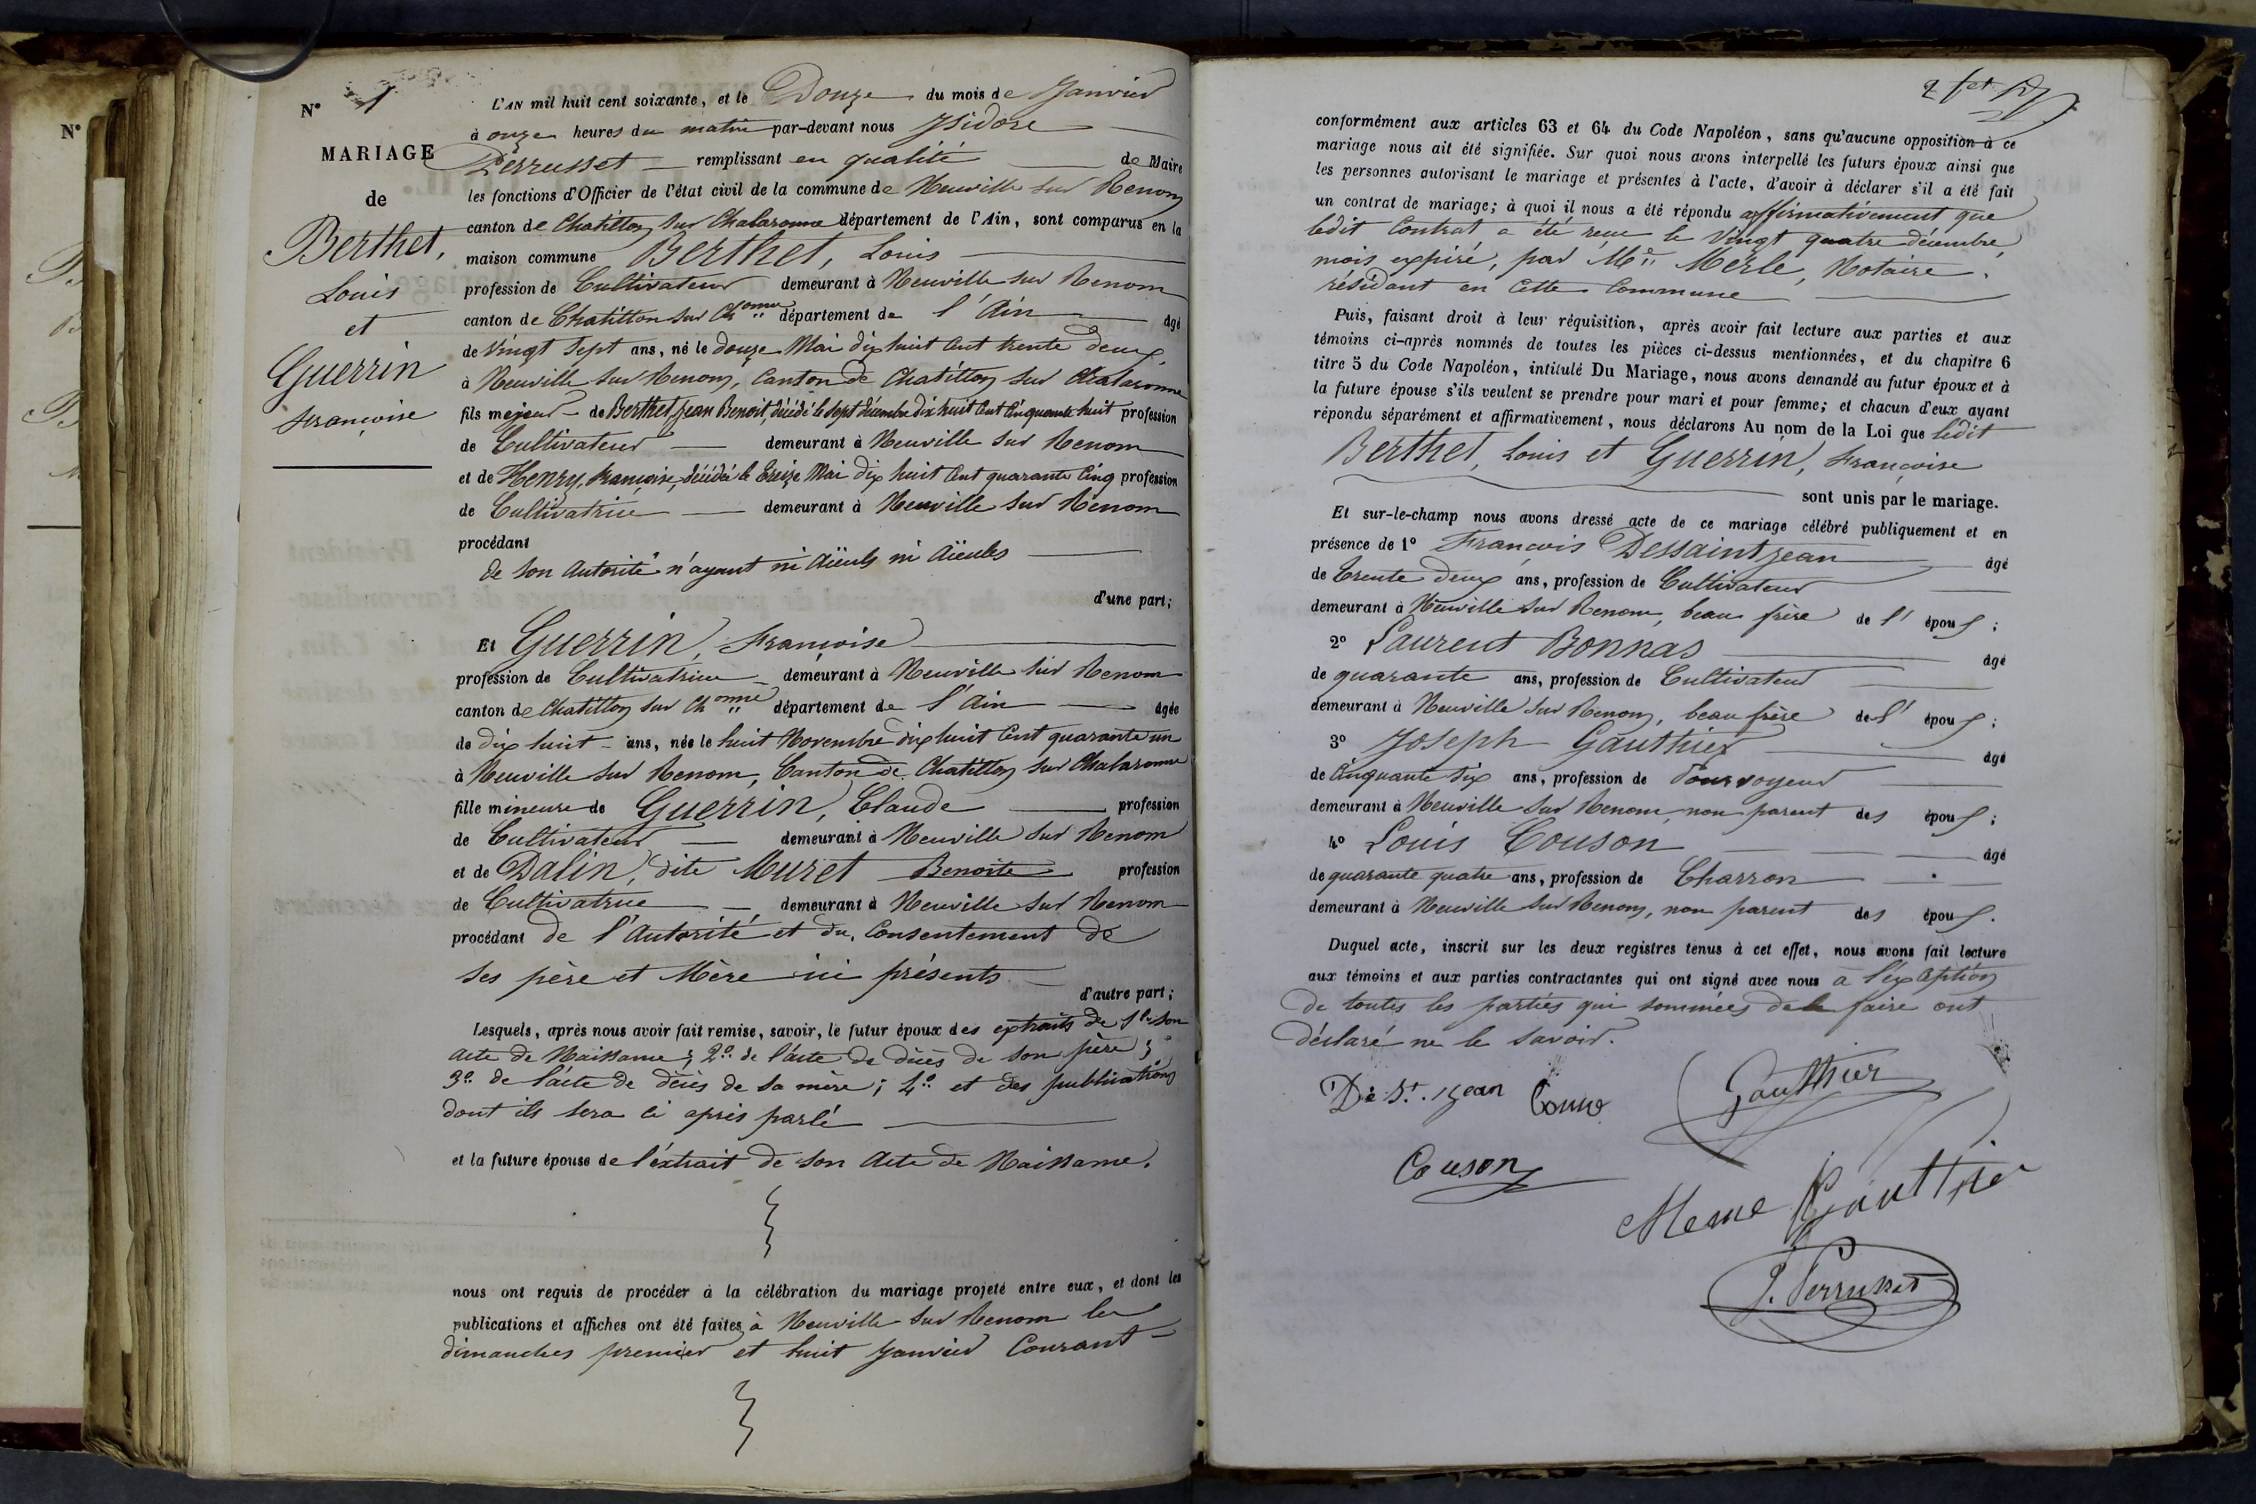 N° 1
MARIAGE
de
Berthet,
Louis
et
Guerrin
Françoise
L'AN mil huit cent soixante, et le Douze du mois de Janvier
à onze heures du matin par-devant nous Ysidore
Perrusset remplissant en qualité de Maire
les fonctions d'Officier de l'état civil de la commune de Neuville sur Renom
canton de Chatillon sur Chalaronne département de l'Ain, sont comparus en la
maison commune Berthet, Louis
profession de Cultivateur demeurant à Neuville sur Renom
canton de Chatillon sur Chonne département de l'Ain âgé
de Vingt Sept ans, né le douze Mai dix huit Cent trente deux,
à Neuville sur Renom, Canton de Chatillon sur Chalaronne
fils majeur de Berthet, Jean Benoit, décédé le sept décembre dix huit Cent Cinquante huit profession
de Cultivateur demeurant à Neuville sur Renom
et de Henry, françoise, décédée le treize Mai dix huit Cent quarante Cinq profession
de Cultivatrice demeurant à Neuville sur Renom
procédant
de son autorité n'ayant ni Aïeuls ni Aïeules
d'une part;
Et Guerrin, Françoise
profession de Cultivatrice demeurant à Neuville sur Renom
canton de Chatillon sur Chonne département de l'Ain âgée
de dix huit ans, née le huit Novembre dix huit Cent quarante un
à Neuville sur Renom, Canton de Chatillon sur Chalaronne
fille mineure de Guerrin, Claude profession
de Cultivateur demeurant à Neuville sur Renom
et de Dalin, dite Muret Benoite profession
de Cultivatrice demeurant à Neuville sur Renom
procédant de l'autorité et du Consentement de
ses père et Mère ici présents
d'autre part;
Lesquels, après nous avoir fait remise, savoir, le futur époux des extraits de 1° son
acte de Naissance; 2° de l'acte de décès de son père;
3° de l'acte de décès de sa mère; 4° et des publications
dont ils sera ci après parlé
et la future épouse de l'extrait de son Acte de Naissance.
nous ont requis de procéder à la célébration du mariage projeté entre eux, et dont les
publications et affiches ont été faites à Neuville sur Renom les
dimanches premier et huit Janvier Courant
conformément aux articles 63 et 64 du Code Napoléon, sans qu'aucune opposition à ce
mariage nous ait été signifiée. Sur quoi nous avons interpellé les futurs époux ainsi que
les personnes autorisant le mariage et présentes à l'acte, d'avoir à déclarer s'il a été fait
un contrat de mariage; à quoi il nous a été répondu affirmativement que
ledit Contrat a été reçu le Vingt quatre décembre
mois expiré, par Me Merle, Notaire
résidant en Cette Commune
Puis, faisant droit à leur réquisition, après avoir fait lecture aux parties et aux
témoins ci-après nommés de toutes les pièces ci-dessus mentionnées, et du chapitre 6
titre 5 du Code Napoléon, intitulé Du Mariage, nous avons demandé au futur époux et à
la future épouse s'ils veulent se prendre pour mari et pour femme; et chacun d'eux ayant
répondu séparément et affirmativement, nous déclarons Au nom de la Loi que ledit
Berthet, Louis et Guerrin, Françoise
sont unis par le mariage.
Et sur-le-champ nous avons dressé acte de ce mariage célébré publiquement et en
présence de 1° François Dessaintjean âgé
de trente deux ans, profession de Cultivateur
demeurant à Neuville sur Renom, beau frère de l' époux;
2° Laurent Bonnas âgé
de quarante ans, profession de Cultivateur
demeurant à Neuville sur Renom, beau frère de l' époux;
3° Joseph Gauthier âgé
de Cinquante dix ans, profession de Pourvoyeur
demeurant à Neuville sur Renom, non parent des époux;
4° Louis Couson âgé
de quarante quatre ans, profession de Charron
demeurant à Neuville sur Renom, non parent des époux.
Duquel acte, inscrit sur les deux registres tenus à cet effet, nous avons fait lecture
aux témoins et aux parties contractantes qui ont signé avec nous à l'exception
de toutes les parties qui sommées de le faire ont
déclaré ne le savoir.
De St. Jean
Gauthier
Couson
Gauthier
J. Perrusset